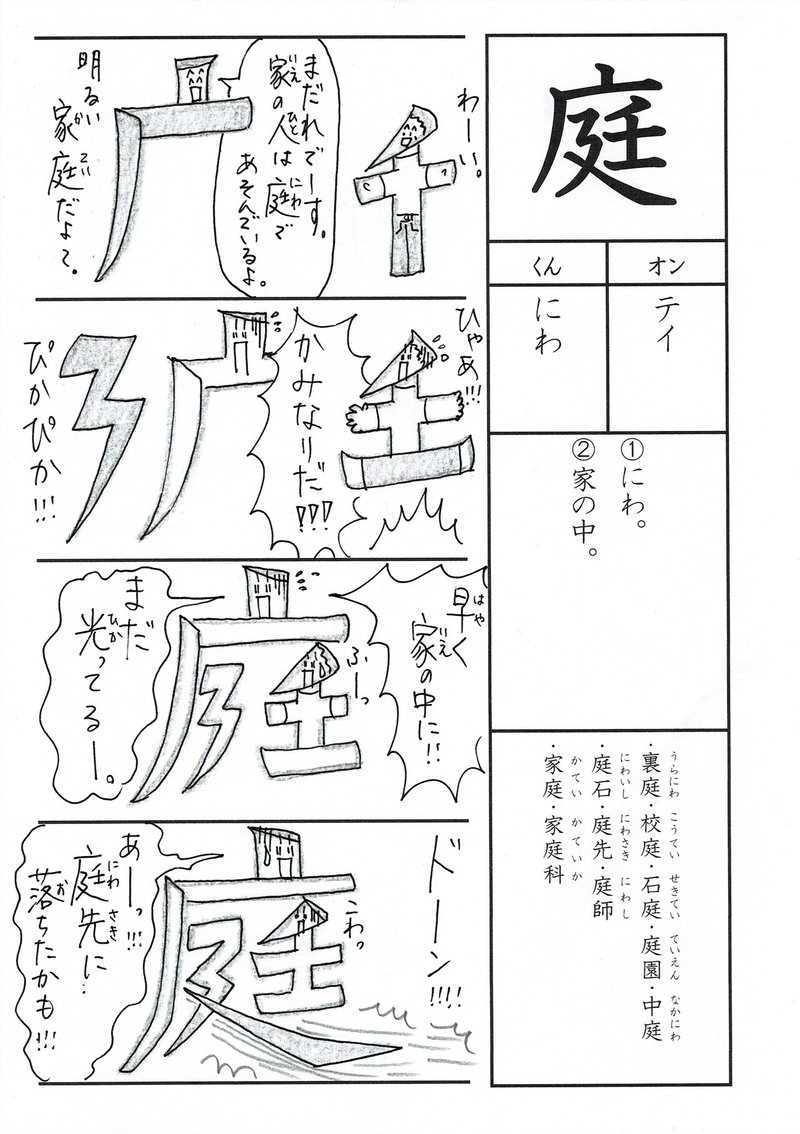 庭
オン
くん
テイ
にわ
①にわ。
②家の中。
・裏庭・校庭・石庭・庭園・中庭
うらにわ こうてい せきてい ていえん なかにわ
・庭石・庭先・庭師
にわいし にわさき にわし
・家庭・家庭科
かてい かていか
わーい。
まだれでーす。
家の人は庭で
いえ ひと にわ
あそんでいるよ。
明るい
家庭だよて。
か てい
ひゃあ!!!
かみなりだ!!!
ぴかぴか!!!
早く
はや
家の中に!!
いえ
ふーっ
まだ
光ってるー。
ひか
ドーン!!!!
こわ。
あーっ!!!
庭先に
にわ さき
落ちたかも!!!
お